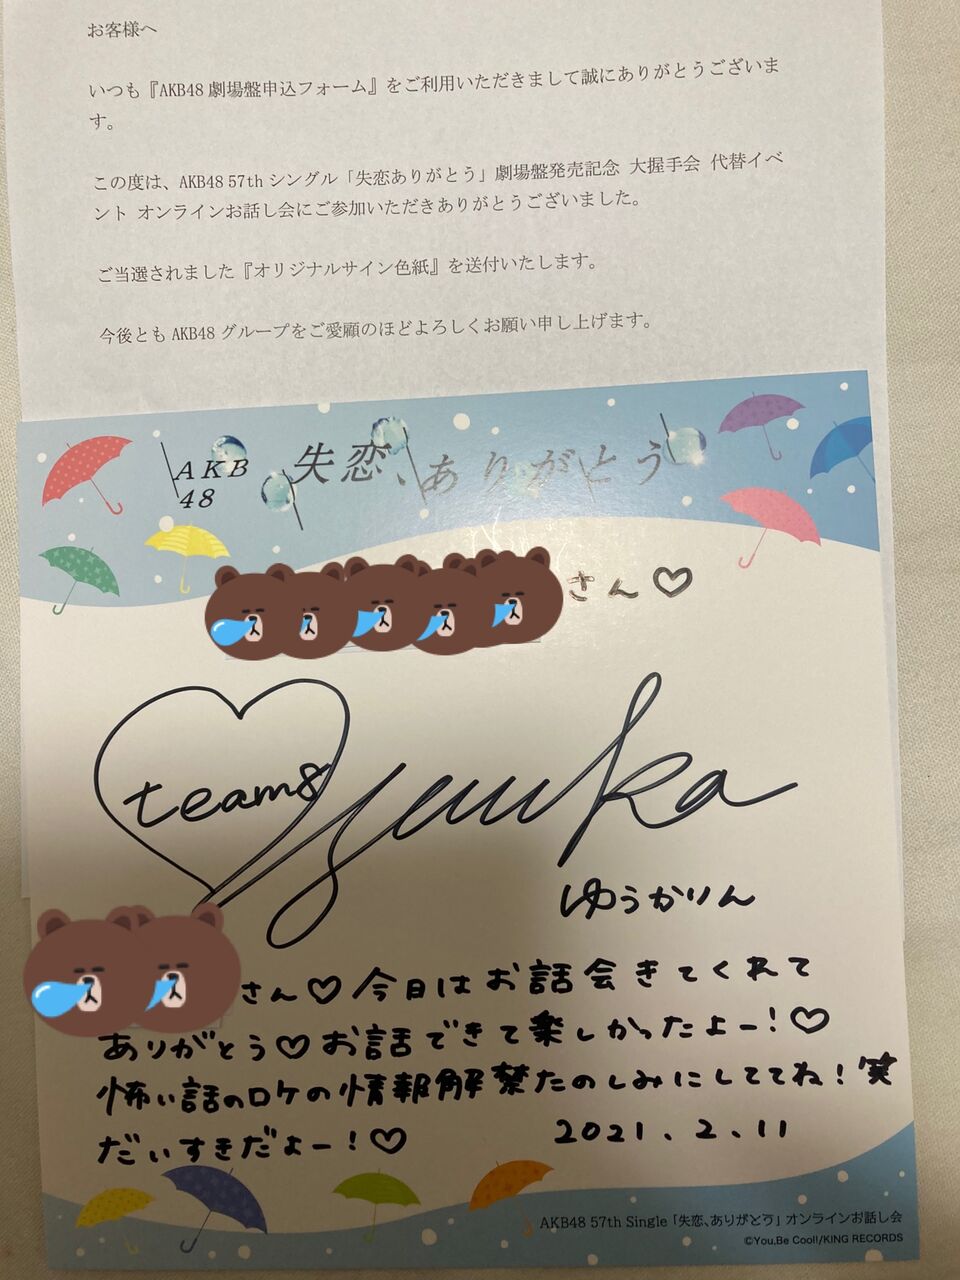 お客様へ
いつも『AKB48 劇場盤申込フォーム』をご利用いただきまして誠にありがとうございま
す。
この度は、AKB48 57th シングル「失恋ありがとう」劇場盤発売記念 大握手会 代替イベ
ント オンラインお話し会にご参加いただきありがとうございました。
ご当選されました『オリジナルサイン色紙』を送付いたします。
今後とも AKB48 グループをご愛顧のほどよろしくお願い申し上げます。
AKB
48
失恋、ありがとう
さん♡
team8
Yuuka
ゆうかりん
さん♡今日はお話会きてくれて
ありがとう♡お話できて楽しかったよー!♡
怖い話のロケの情報解禁たのしみにしててね!笑
だいすきだよー!♡
2021.2.11
AKB48 57th Single「失恋、ありがとう」オンラインお話し会
©You,Be Cool!/KING RECORDS